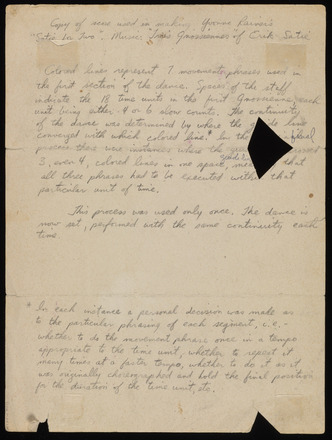 Copy of score used in making Yvonne Rainer's
"Satie for Two". Music: "Trois Gnossiennes" of Erik Satie
Colored lines represent 7 movement phrases used in
the first section of the dance. Spaces of the staff
indicate the 18 time units in the first Gnossienne, each
unit being either 4 or 6 slow counts. The continuity
of the dance was determined by where the
converged with which colored line.* In this
process there were instances where the
3, even 4, colored lines in one space,
all three phrases had to be executed within that
particular unit of time.
This process was used only once. The dance is
now set, performed with the same continuity each
time.
* In each instance a personal decision was made as
to the particular phrasing of each segment, i.e. -
whether to do the movement phrase once in a tempo
appropriate to the time unit, whether to repeat it
many times at a faster tempo, whether to do it as it
was originally choreographed and hold the final position
for the duration of the time unit, etc.